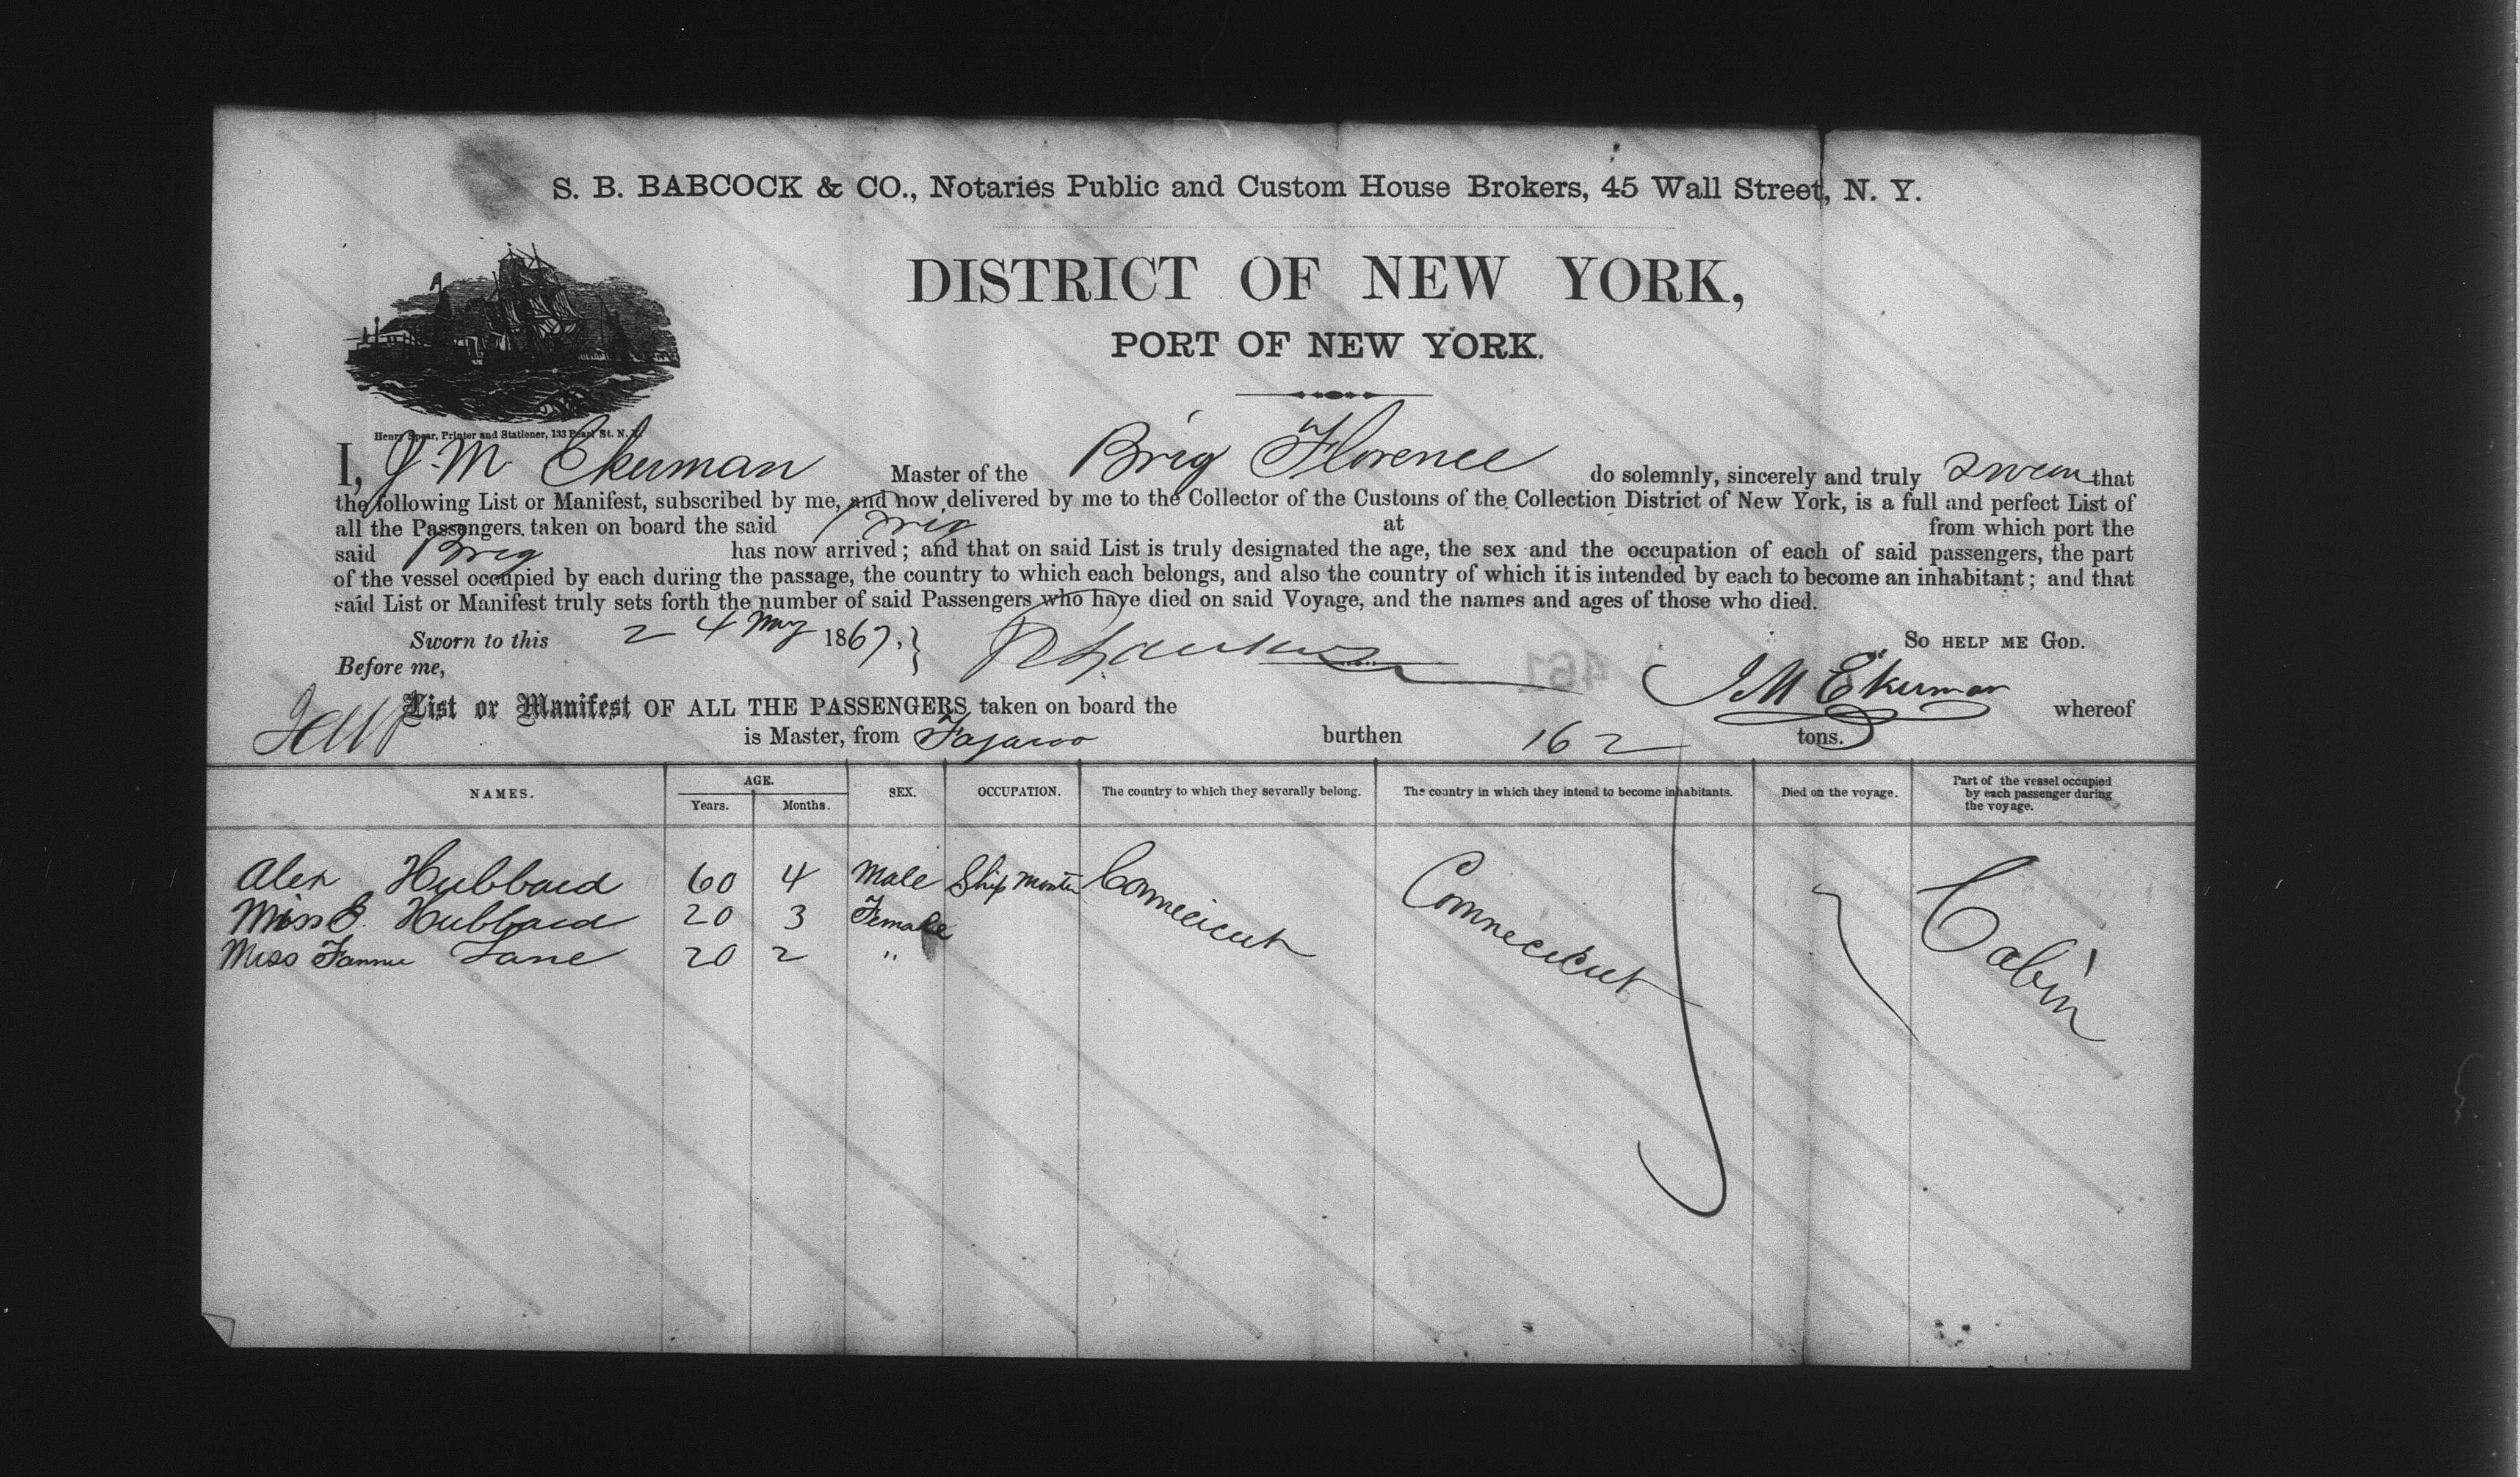 S. B. BABCOCK & CO., Notaries Public and Custom House Brokers, 45 Wall Street, N. Y.
DISTRICT OF NEW YORK,
PORT OF NEW YORK.
Henry Spear, Printer and Stationer, 133 Pearl St. N. Y.
I, J. M Ekerman Master of the Brig Florence do solemnly, sincerely and truly swear that
the following List or Manifest, subscribed by me, and now delivered by me to the Collector of the Customs of the Collection District of New York, is a full and perfect List of
all the Passengers taken on board the said Brig at from which port the
said Brig has now arrived; and that on said List is truly designated the age, the sex and the occupation of each of said passengers, the part
of the vessel occupied by each during the passage, the country to which each belongs, and also the country of which it is intended by each to become an inhabitant; and that
said List or Manifest truly sets forth the number of said Passengers who have died on said Voyage, and the names and ages of those who died.
Sworn to this 24 May 1867. } So help me God.
Before me, J M Ekerman
List or Manifest OF ALL THE PASSENGERS taken on board the whereof
is Master, from Fajardo burthen 162 tons.
NAMES. AGE. Years. Months. SEX. OCCUPATION. The country to which they severally belong. The country in which they intend to become inhabitants. Died on the voyage. Part of the vessel occupied by each passenger during the voyage.
Alex Hubbard 60 4 Male Ship Master Connecicut Connecicut Cabin
Miss E. Hubbard 20 3 Female
Miss Fannie Lane 20 2 "
461